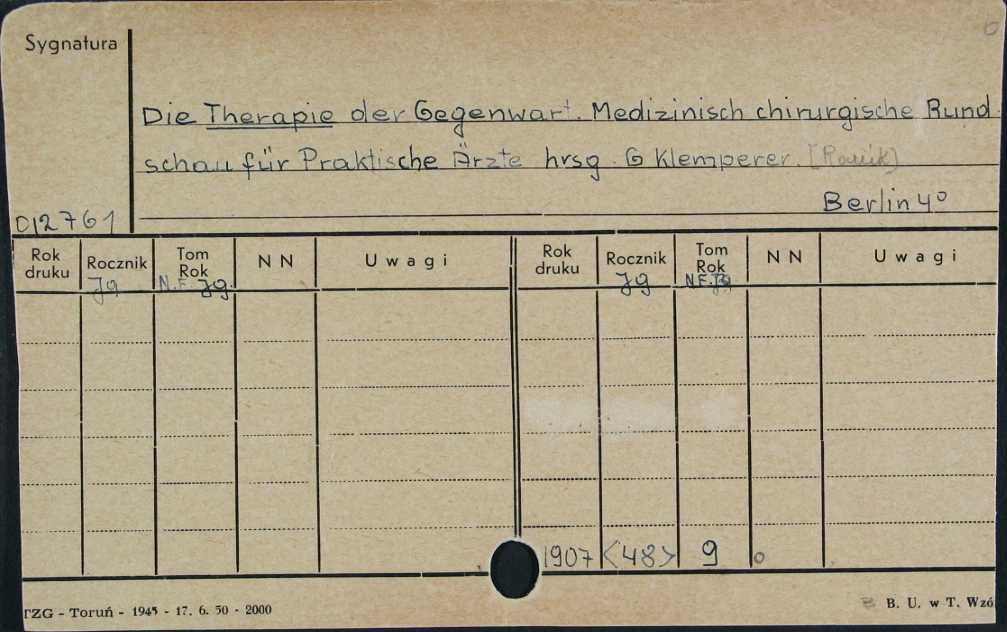 6
Sygnatura
Die Therapie der Gegenwart. Medizinisch chirurgische Rund
schau für Praktische Ärzte hrsg. G Klemperer.
Berlin 4º
012761
Rok druku Rocznik Tom Rok NN Uwagi Rok druku Rocznik Tom Rok NN Uwagi
Jg N.F. Jg. Jg N.F. Jg
1907 <48> 9 o
TZG - Toruń - 1945 - 17. 6. 50 - 2000
B. U. w T. Wzó